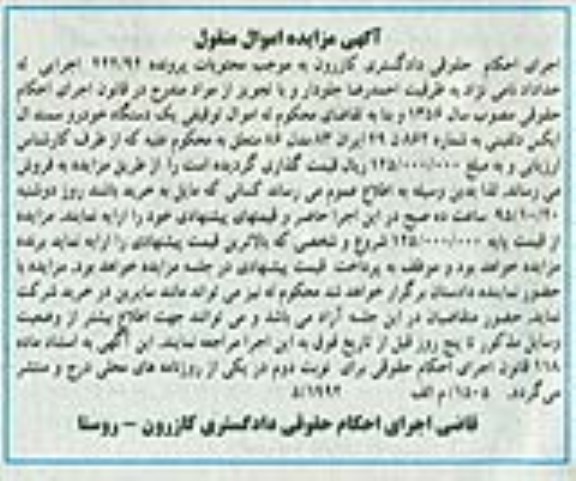 آگهی مزایده اموال منقول
اجرای احکام حقوقی دادگستری کازرون به موجب محتویات پرونده ۲۲۲/۹۴ اجرایی له
خداداد نامی نژاد به طرفیت احمدرضا جلودار و با تجویز از مواد مندرج در قانون اجرای احکام
حقوقی مصوب سال ۱۳۵۶ و بنا به تقاضای محکوم له اموال توقیفی یک دستگاه خودرو سمند ال
ایکس دلفینی به شماره ۸۶۲ن ۲۹ ایران ۸۳ مدل ۸۶ متعلق به محکوم علیه که از طرف کارشناس
ارزیابی و به مبلغ ۱۲۵/۰۰۰/۰۰۰ ریال قیمت گذاری گردیده است را از طریق مزایده به فروش
می رساند. لذا بدین وسیله به اطلاع عموم می رساند کسانی که مایل به خرید باشند روز دوشنبه
۹۵/۱۰/۲۰ ساعت ده صبح در این اجرا حاضر و قیمتهای پیشنهادی خود را ارایه نمایند. مزایده
از قیمت پایه ۱۲۵/۰۰۰/۰۰۰ شروع و شخصی که بالاترین قیمت پیشنهادی را ارایه نماید برنده
مزایده خواهد بود و موظف به پرداخت قیمت پیشنهادی در جلسه مزایده خواهد بود. مزایده با
حضور نماینده دادستان برگزار خواهد شد محکوم له نیز می تواند مانند سایرین در خرید شرکت
نماید. حضور متقاضیان در این جلسه آزاد می باشد و می توانند جهت اطلاع بیشتر از وضعیت
وسایل مذکور تا پنج روز قبل از تاریخ فوق به این اجرا مراجعه نمایند. این آگهی به استناد ماده
۱۱۸ قانون اجرای احکام حقوقی برای نوبت دوم در یکی از روزنامه های محلی درج و منتشر
می گردد. ۱۵۰۵/ م الف ۵/۱۹۹۲
قاضی اجرای احکام حقوقی دادگستری کازرون - روستا